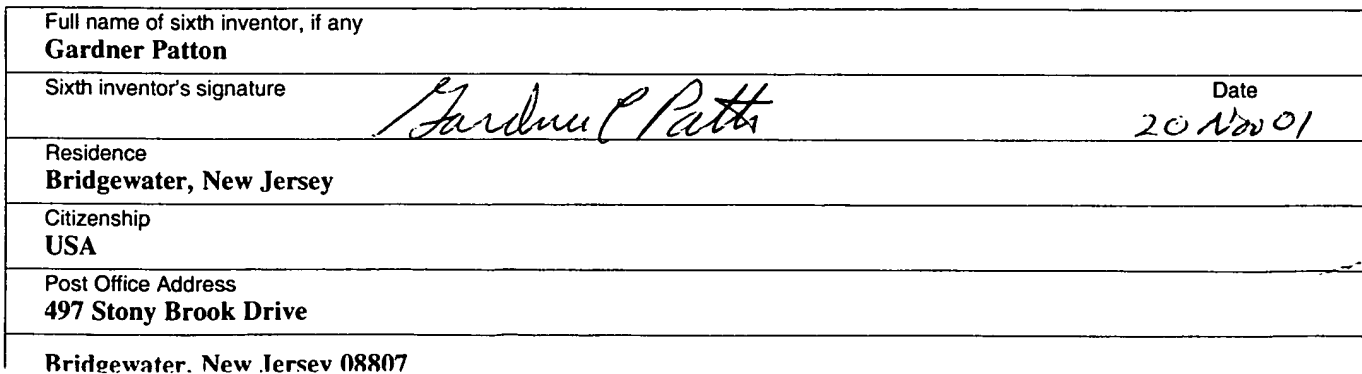 Full name of sixth inventor, if any
Gardner Patton
Sixth inventor's signature
Gardner C Patton
Date
20 Nov 01
Residence
Bridgewater, New Jersey
Citizenship
USA
Post Office Address
497 Stony Brook Drive
Bridgewater, New Jersey 08807